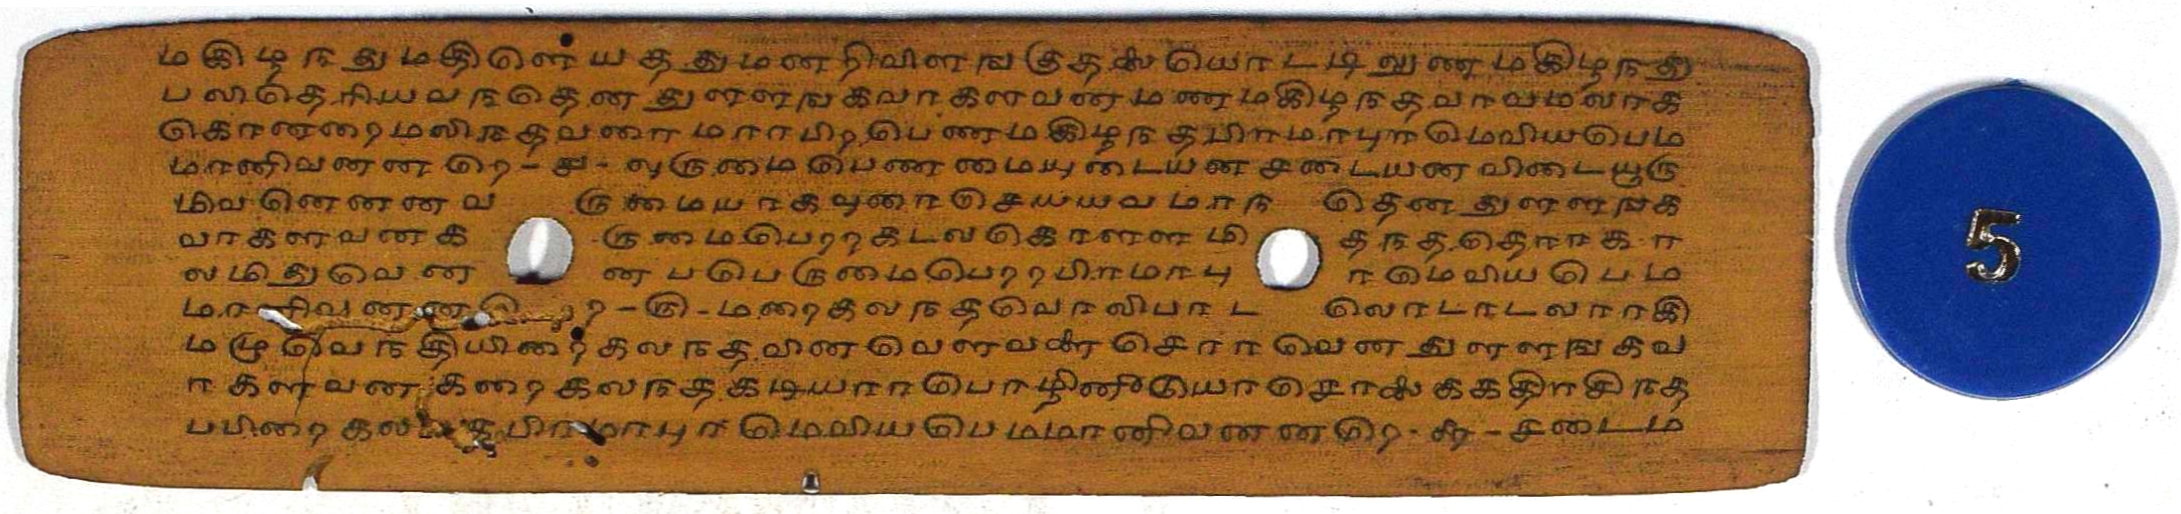 மகிழநதுமதிளெயததுமனறிவிளஙகுதலையொடடிலுணமகிழநது
பலிதெரியவநதெனதுளளஙகவாகளவனமணமகிழநதவரவமலாக
கொனறைமலிநதவரைமாாபிறபெணமகிழநதபிரமாபுரமெவியபெம
மானிவனனறெ-ச-வுருமைபெணமையுடையனசடையனவிடையூரு
மிவனெனனவ ருமையாகவுரைசெயயவமாந தெனதுளளஙக
வாகளவனக ருமைபெறறகடலகொளள மி தநததொாகா
லமிதுவென னபபெருமைபெறறபிரமாபு ரமெவியபெம
மானிவனனறெ-ரு-மறைகலநதவொலிபாட லொடாடலராகி
மழுவெநதியிறைகலநதவினவெளவளைசொரவெனதுளளஙகவ
ாகளவனகறைகலநதகடியாாபொழினீடுயாசொலைககதிாசிநத
பபிறைகலநதபிரமாபுரமெவியபெமமானிவனனறெ-சு-சடைம
5